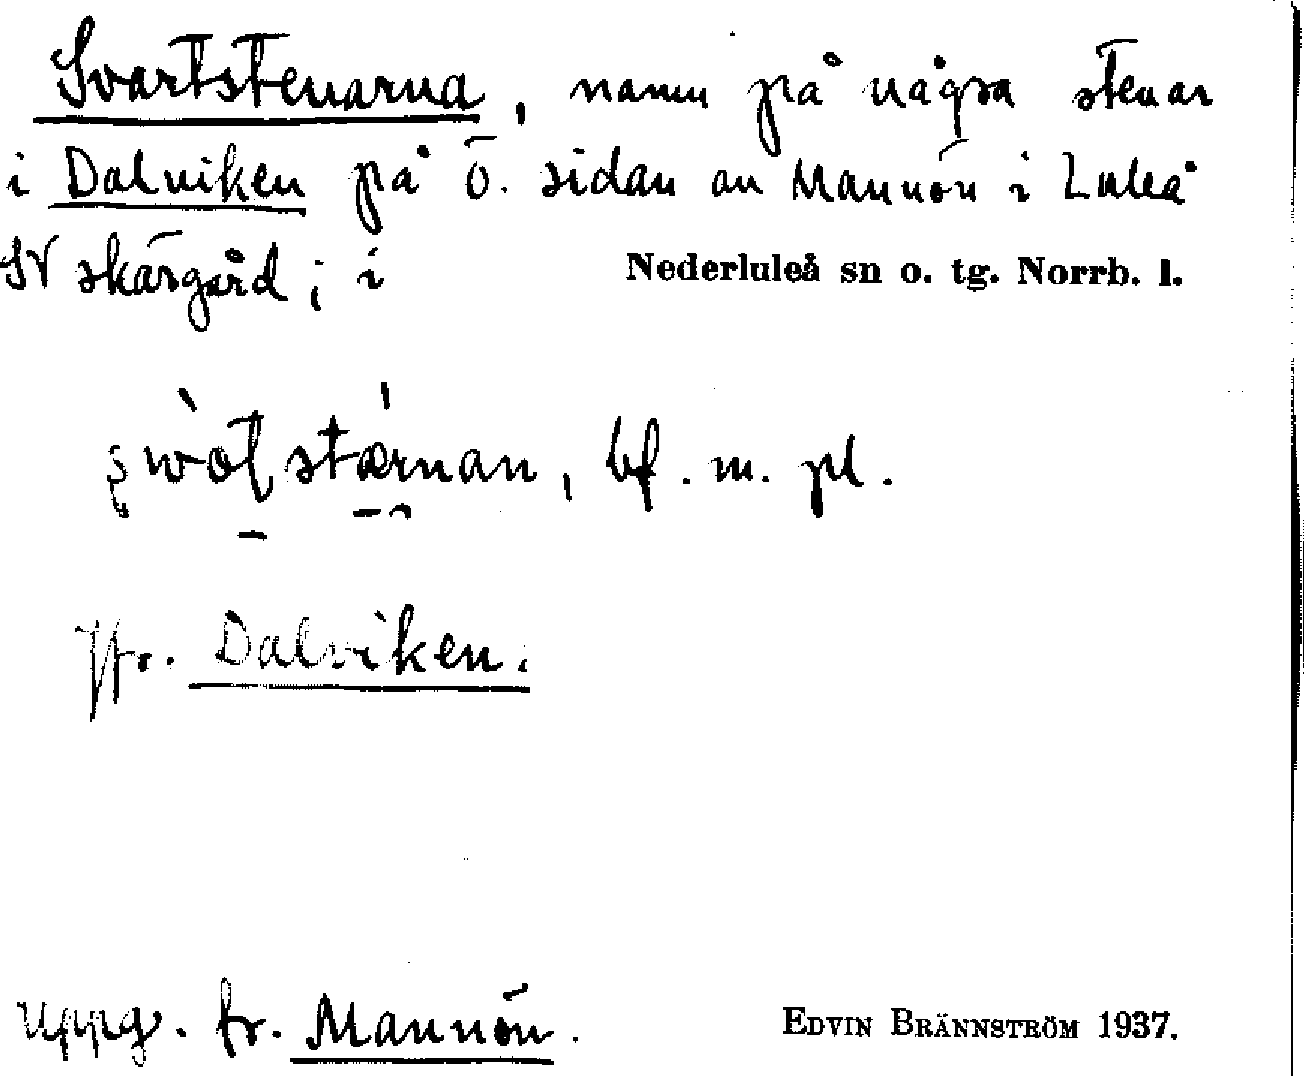 Svartstenarna, namn på några stenar
i Dalviken på ö. sidan av Mannön i Luleå
SV skärgård; i Nederluleå sn o. tg. Norrb. l.
bf. m. pl.
Jfr. Dalviken.
Uppg. fr. Mannön. EDVIN BRÄNNSTRÖM 1937.